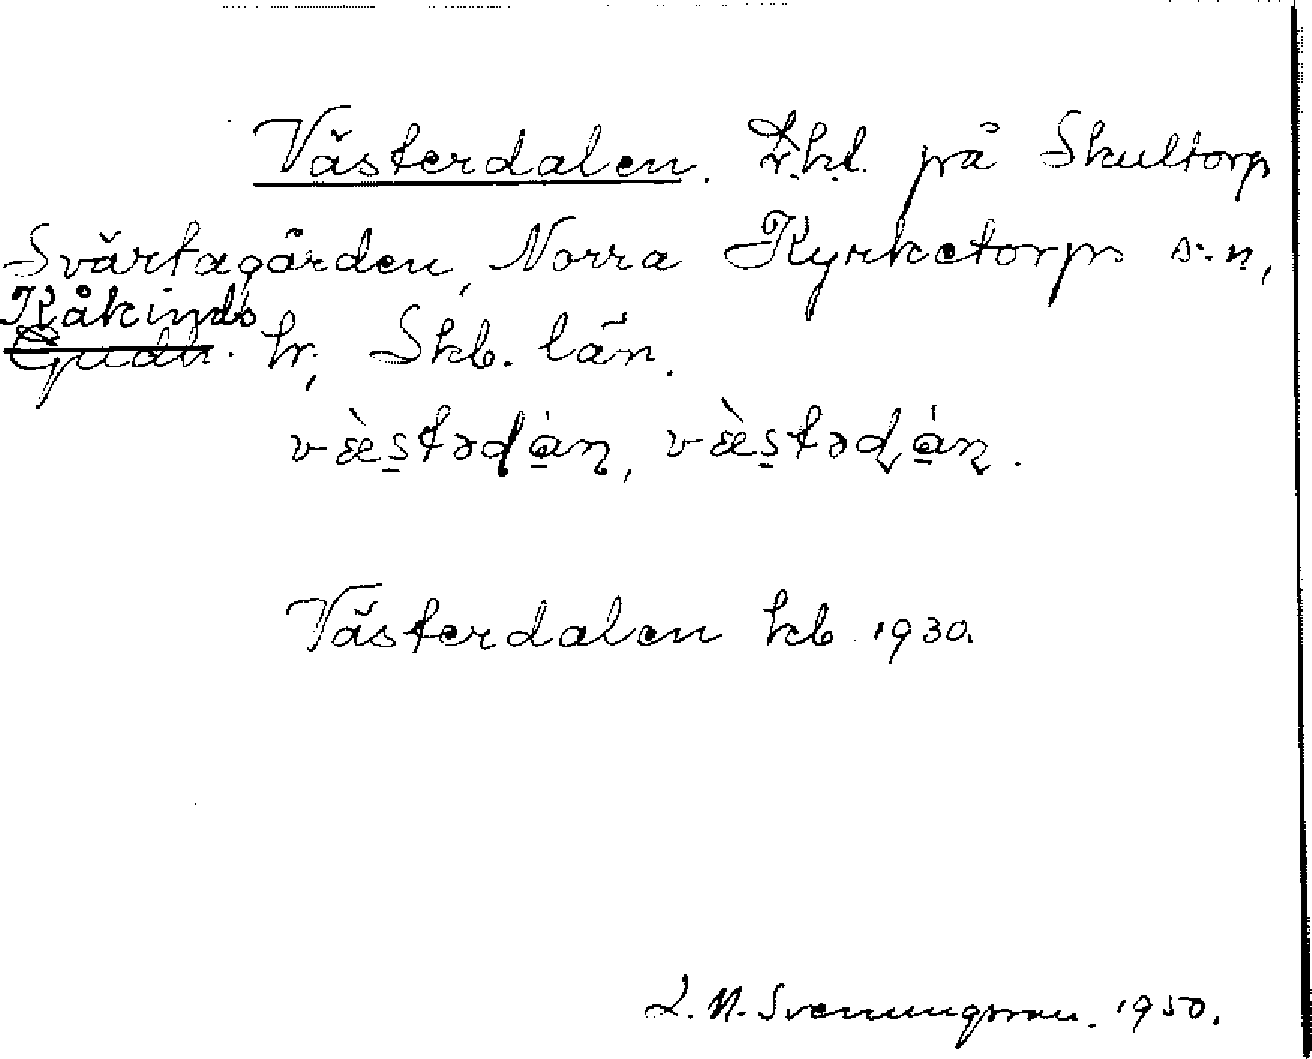 Västerdalen. Lht. på Skultorp
Svärtagården, Norra Kyrketorps s:n,
Kåkinds
Gudh. hr, Skb. län.
Västerdalen kb 1930.
L. N. Svenungsson. 1950.